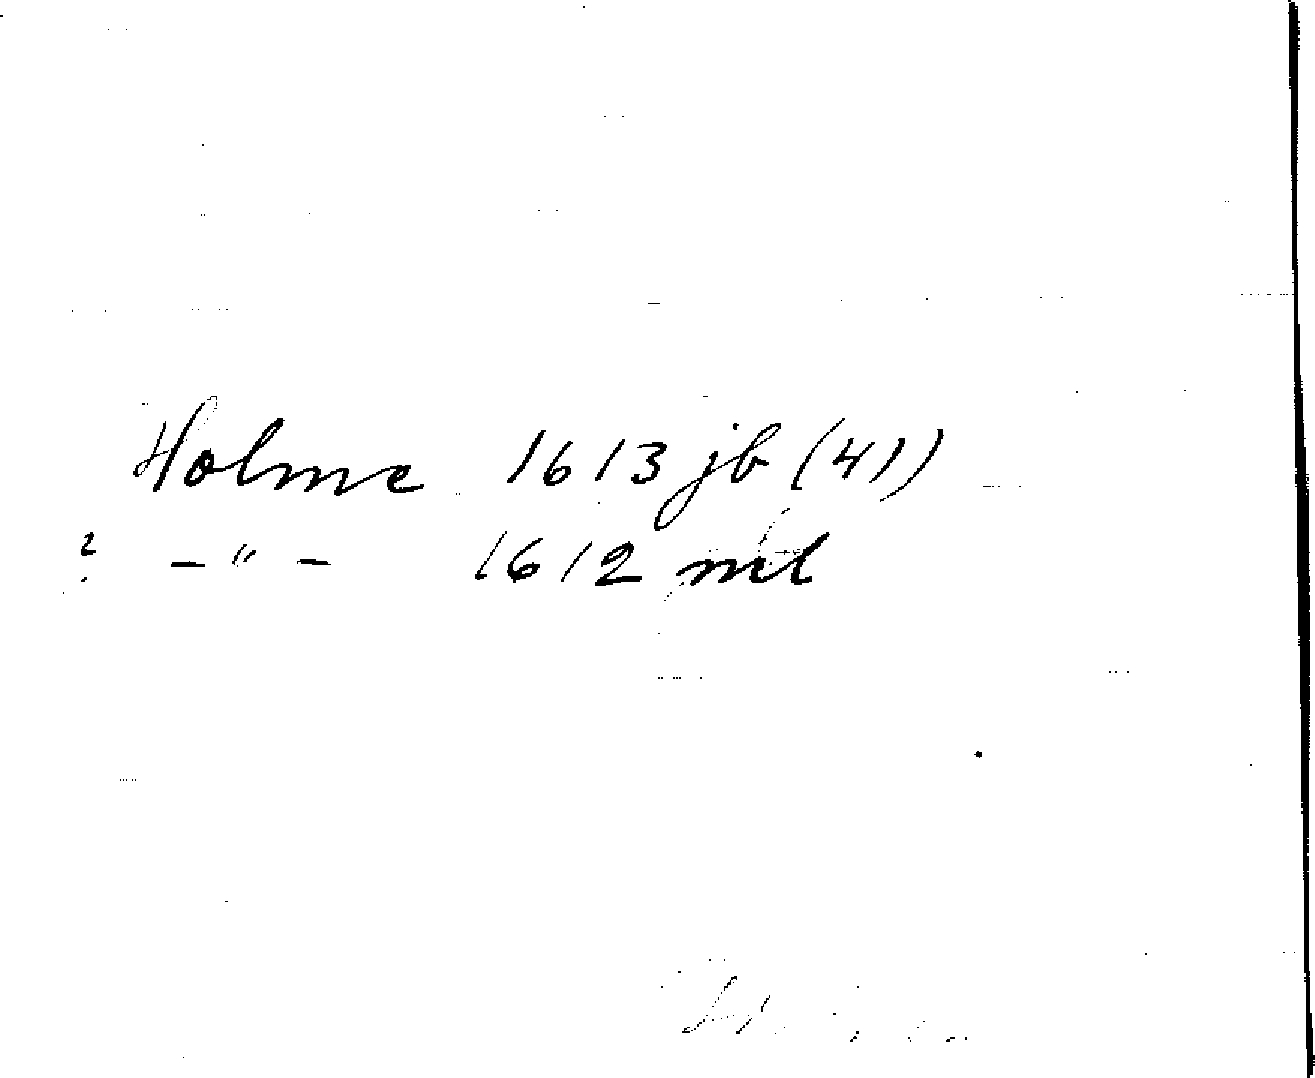 Holme 1613 jb (41)
? - " - 1612 ml